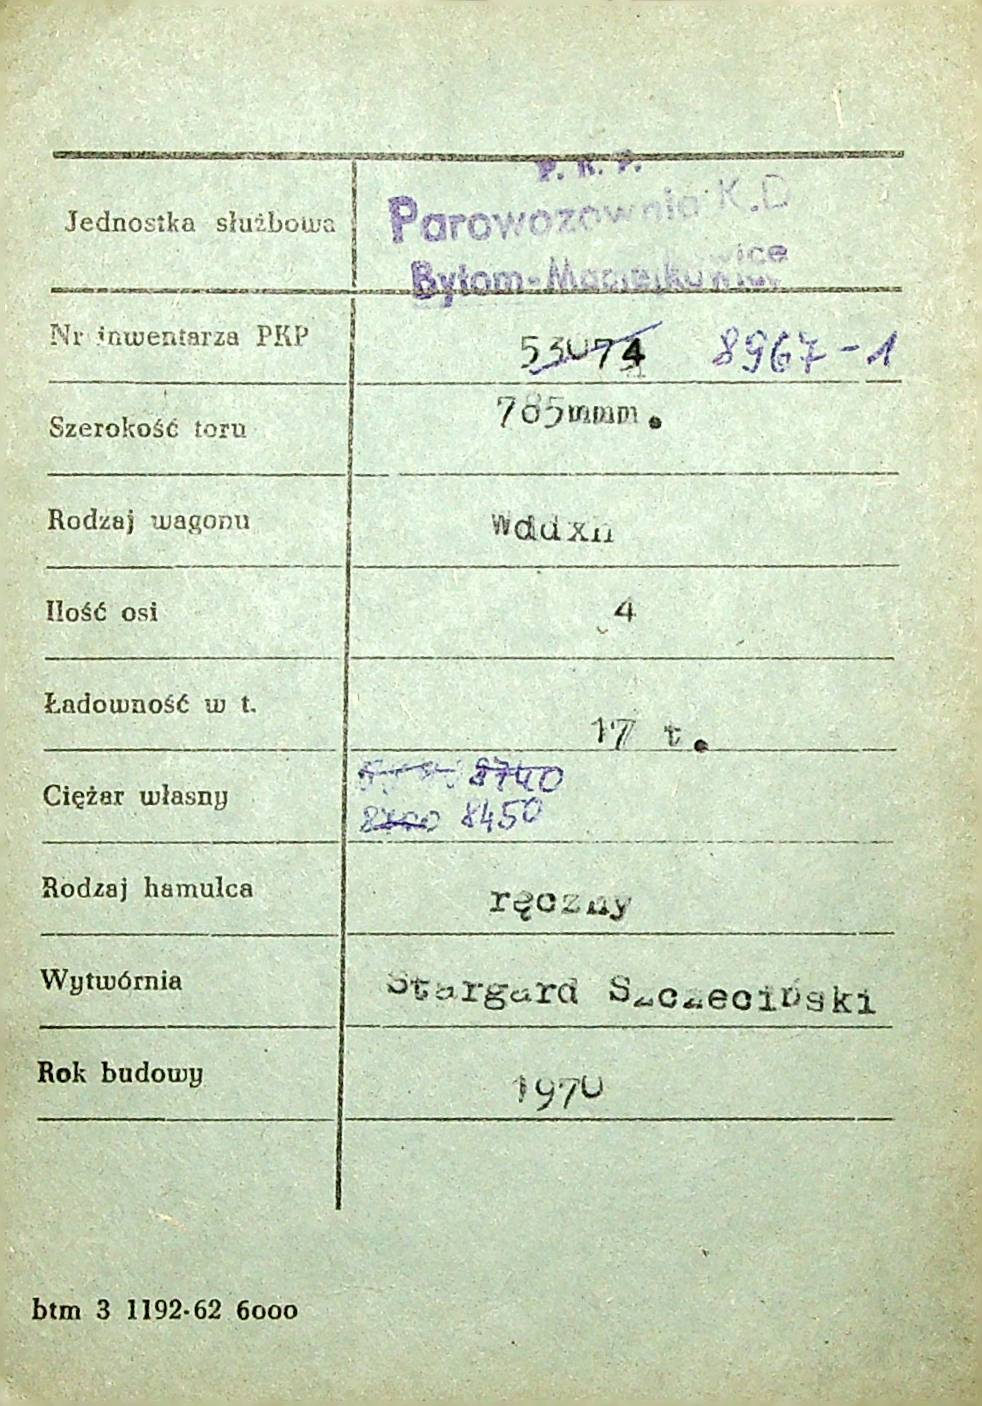 P. K. P.
Jednostka służbowa Parowozownia K.D
Bytom-Maciejkowice
Nr inwentarza PKP 53074 8967-1
Szerokość toru 785mmm.
Rodzaj wagonu Wddxh
Ilość osi 4
Ładowność w t. 17 t.
8740
Ciężar własny 8450
Rodzaj hamulca ręczny
Wytwórnia Stargard Szczeciński
Rok budowy 1970
btm 3 1192-62 6000